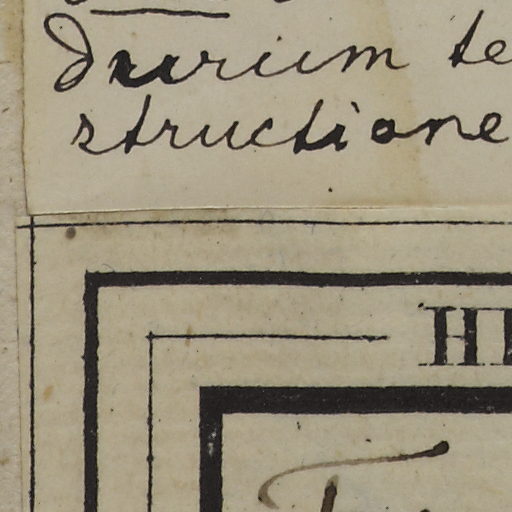 Durium te
structione
HE